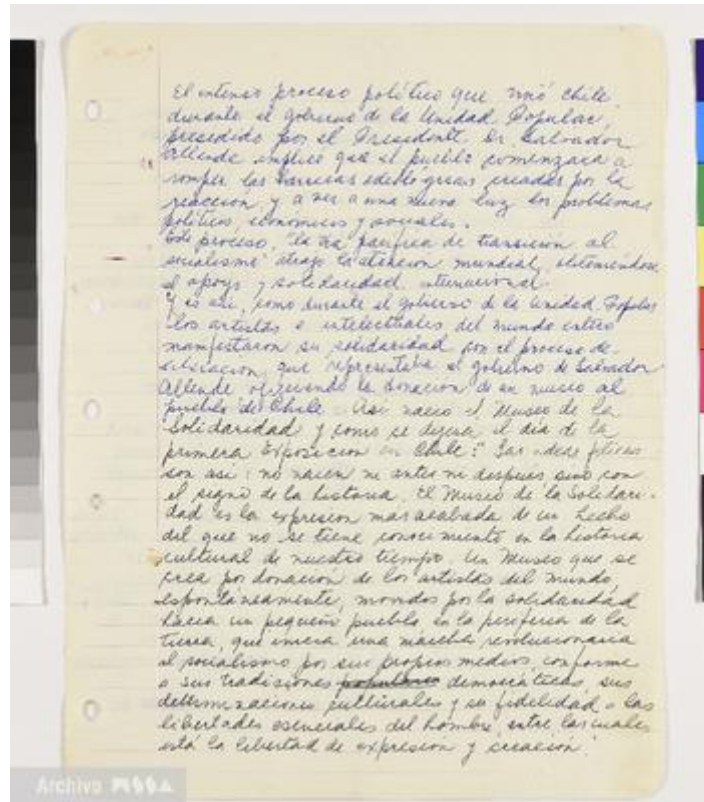 El intenso proceso político que vivió Chile,
durante el gobierno de la Unidad Popular,
presedido por el Presidente Dr. Salvador
Allende implicó que el pueblo comenzara a
romper las barreras ideológicas creadas por la
reacción y a ver a una nueva luz los problemas
políticos, económicos y sociales.
Este proceso, "la vía pacífica de transición al
socialismo" atrajo la atención mundial, obteniéndose
el apoyo y solidaridad internacional.
Y es así, como durante el gobierno de la Unidad Popular
los artistas e intelectuales del mundo entero
manifestaron su solidaridad con el proceso de
liberación, que representaba el gobierno de Salvador
Allende ofreciendo la donación de un museo al
pueblo de Chile. Así nació el Museo de la
Solidaridad y como se dijera el día de la
primera Exposición en Chile: "Las ideas felices
son así: no nacen ni antes ni después sino con
el signo de la historia. El Museo de la Solidari-
dad es la expresión más acabada de un hecho
del que no se tiene conocimiento en la historia
cultural de nuestro tiempo. Un Museo que se
crea por donación de los artistas del mundo,
espontáneamente, movidos por la solidaridad
hacia un pequeño pueblo en la periferia de la
tierra, que inicia una marcha revolucionaria
al socialismo por sus propios medios, conforme
a sus tradiciones democráticas, sus
determinaciones culturales y su fidelidad a las
libertades esenciales del hombre, entre las cuales
está la libertad de expresión y creación."
Archivo MSSA